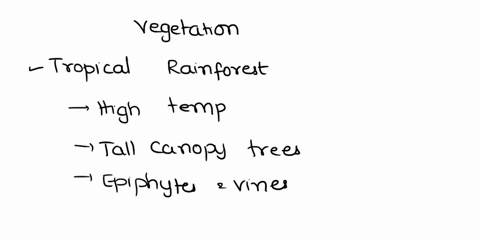 Vegetation
✓ Tropical Rainforest
→ High temp
→ Tall canopy trees
→ Epiphytes & vines